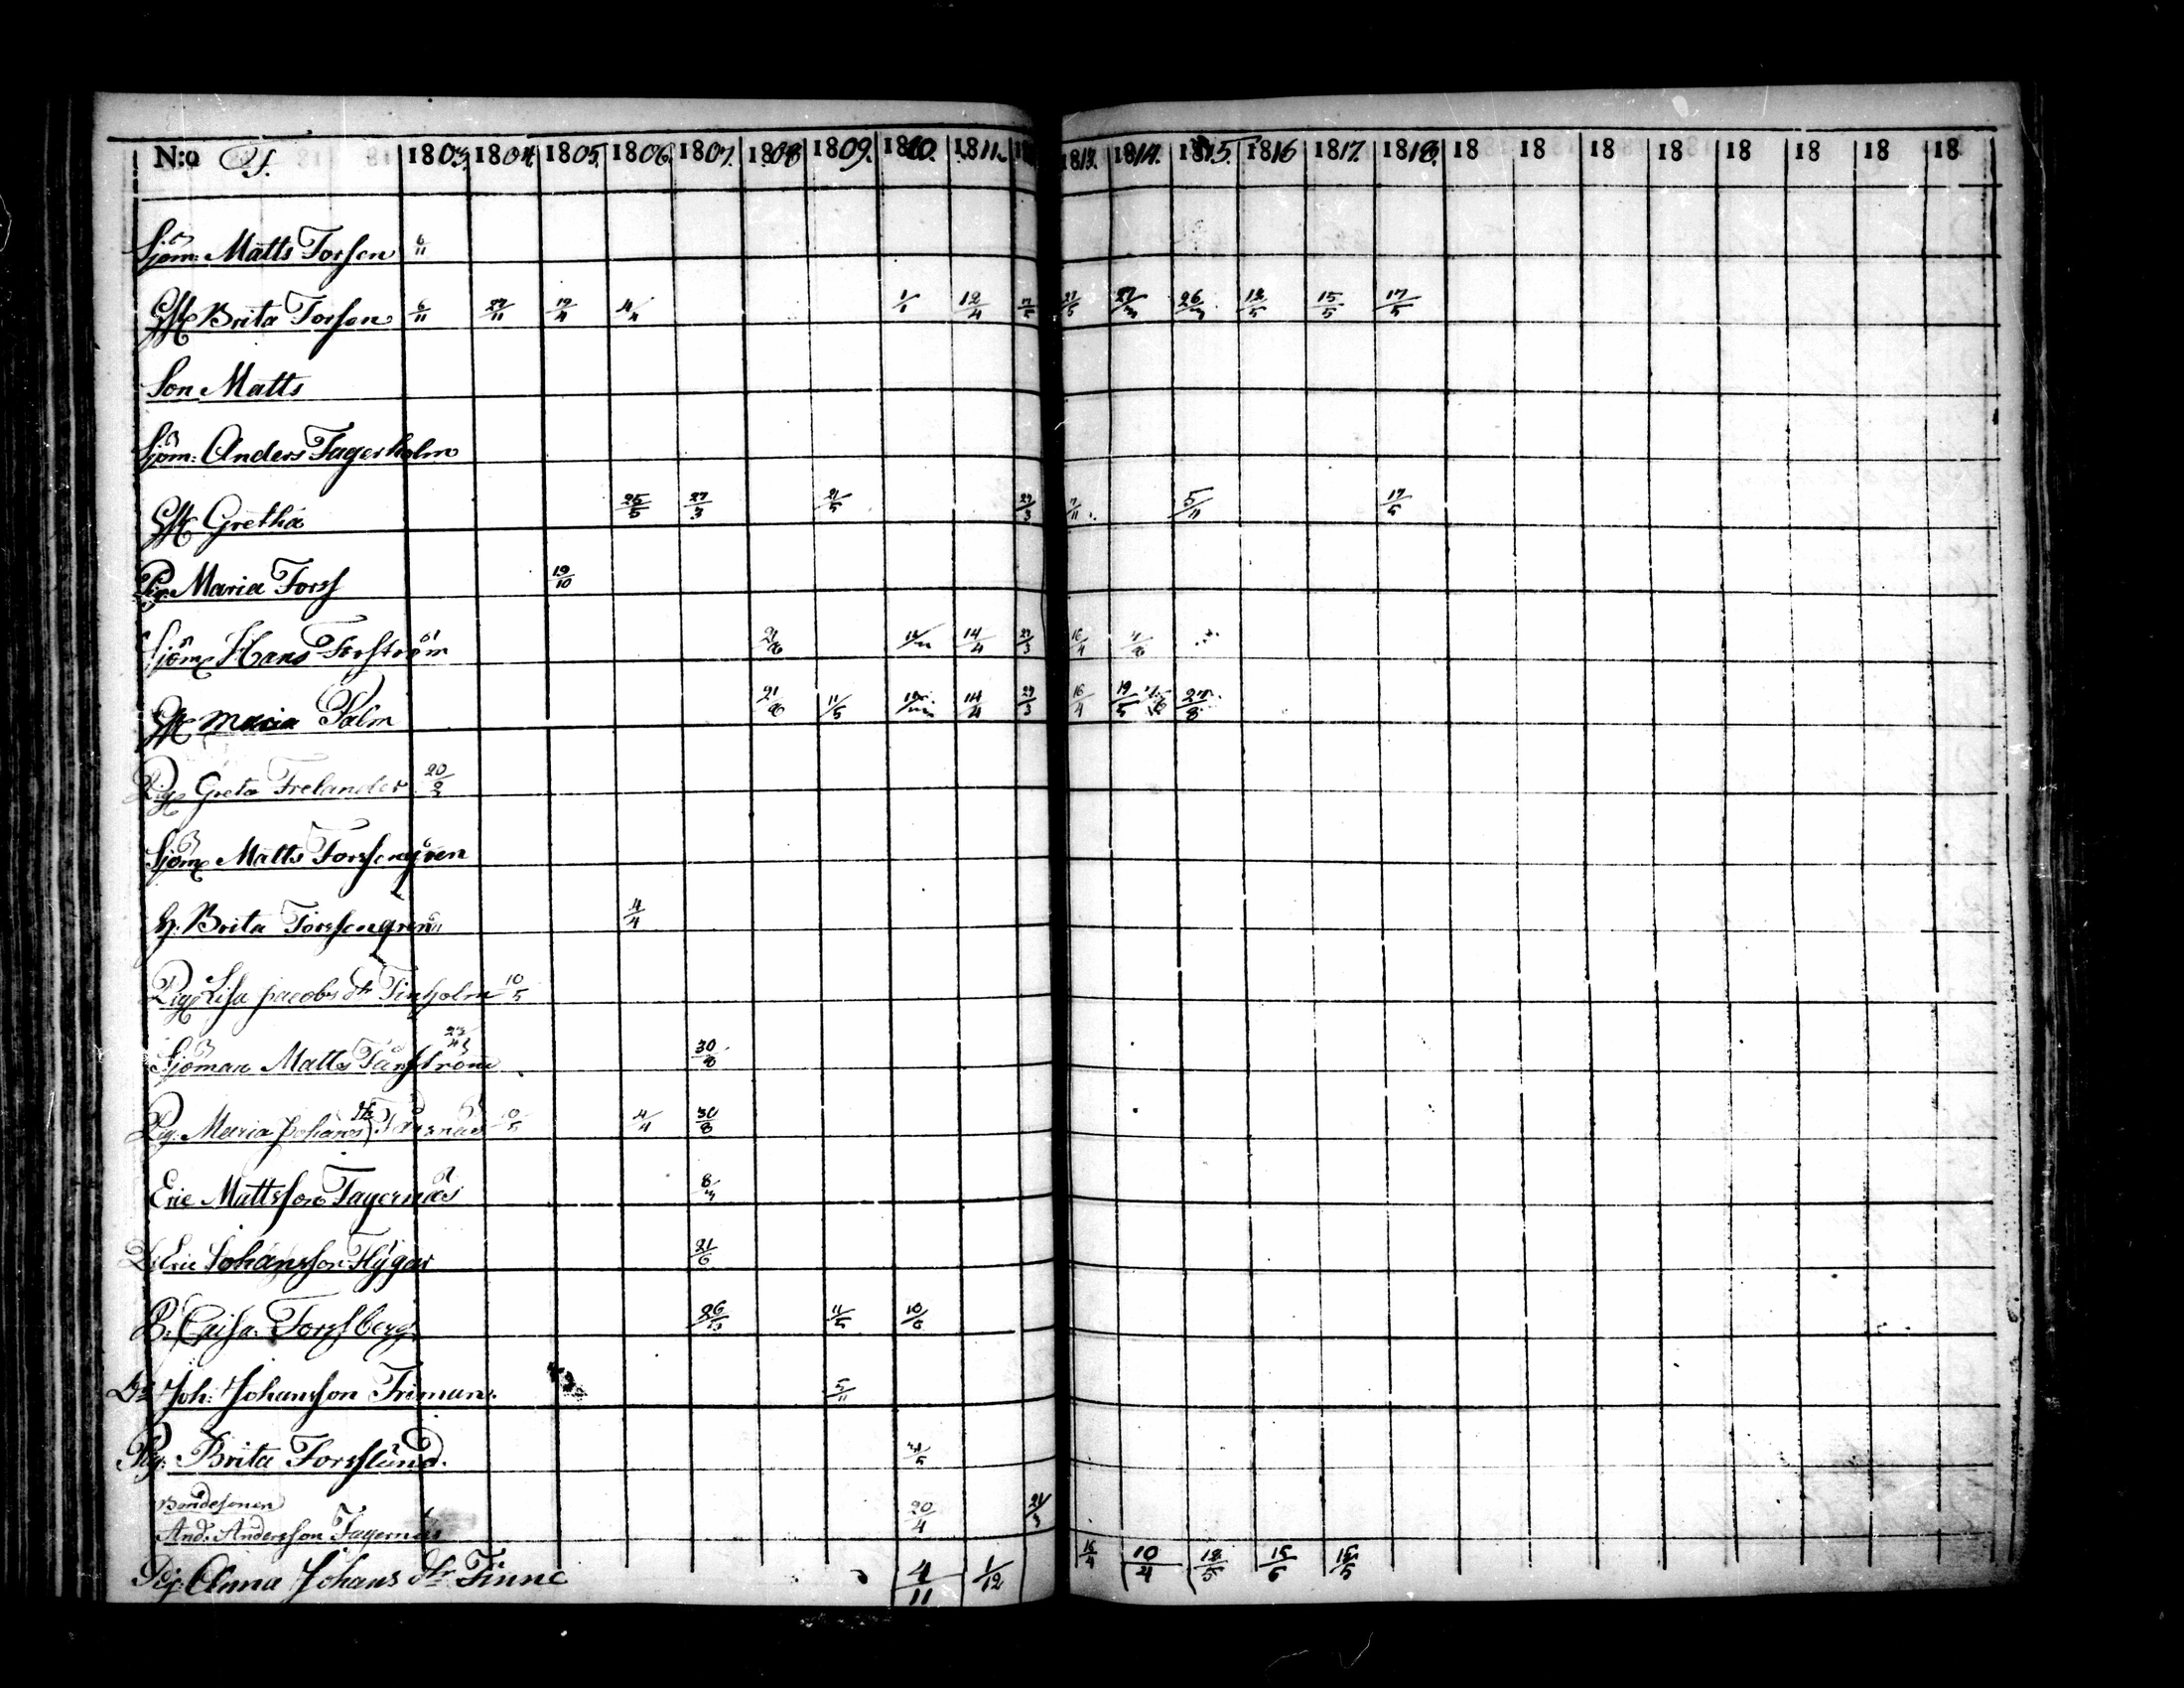 N:o F. 1803. 1804 1805. 1806. 1807. 1808 1809. 1810. 1811. 18 1813. 1814. 1815. 1816 1817. 1818. 18 18 18 18 18 18 18 18
Sjöm: Matts Forsen 6/11
Brita Forsen 6/11 12/4 4/4 1/1 12/4 27/3 26/3 12/5 15/5 17/5
Son Matts
Sjöm: Anders Fagerholm
Gretha 25/5 27/3 21/5 27/3 7/11 5/11 17/5
Pig: Maria Forss 19/10
Sjöm Hans Forström 21/8 14/4 27/3 16/4
Maria Palm 21/8 11/5 14/4 27/3 16/4 19/5 27/8
Pig Greta Frelander 20/2
Sjöm Matts Forssengren
H. Brita Forssengren 4/4
Pig Lisa Jacobs dr Finholm 10/5
Sjöman Matts Farström 30/8
Pig: Maria Johans dr Fårsnäs 10/5 4/4 30/8
Eric Mattsson Fagernäs 8/3
Eric Johansson Flygar 21/6
P: Caisa Forssberg 26/13 11/5 10/6
Dr Joh: Johansson Friman. 5/11
Pig: Brita Forsslund.
Bondesonen
And: Andersson Fagernäs 20/4 21/3
Pig: Anna Johans dr Finne 4/11 1/12 16/4 10/4 18/5 15/6 15/5